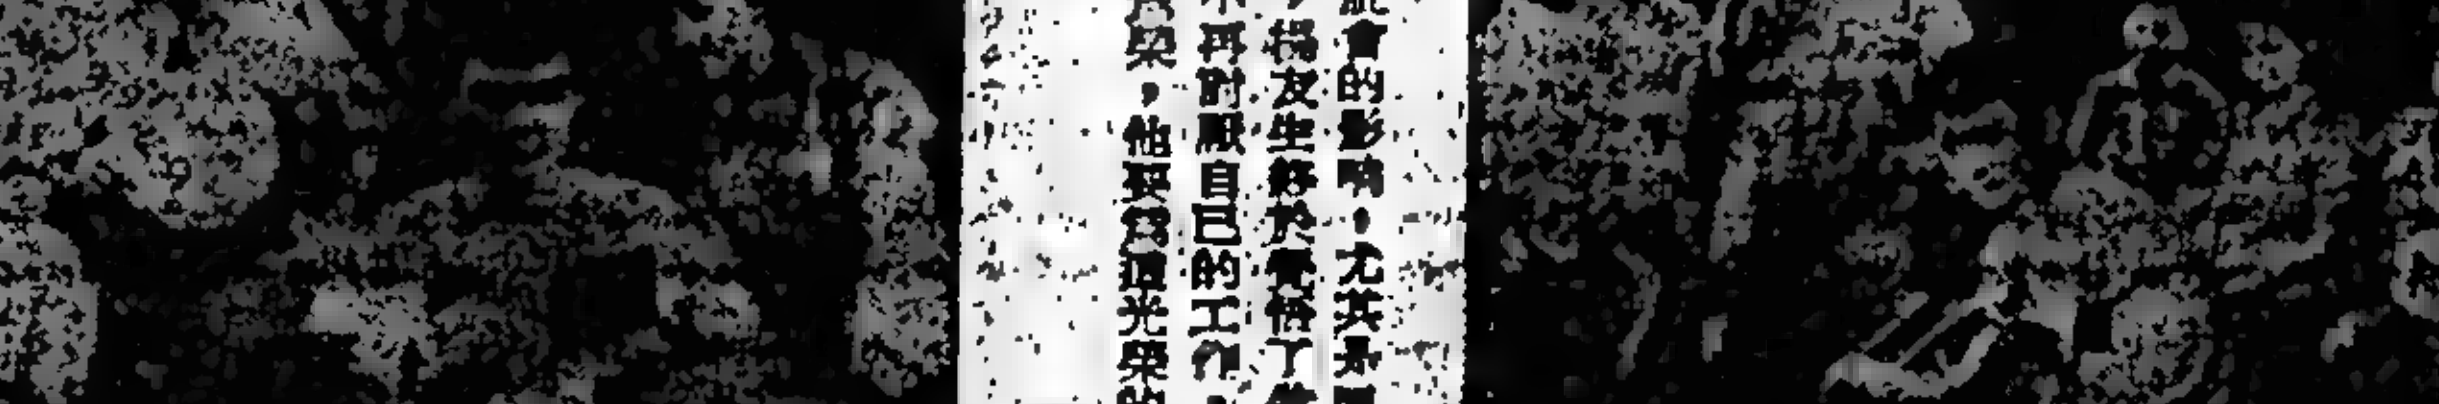 會的影响，尤其是
楊友生終於覺悟了
不再討厭自己的工作，
榮，他認爲這光榮的